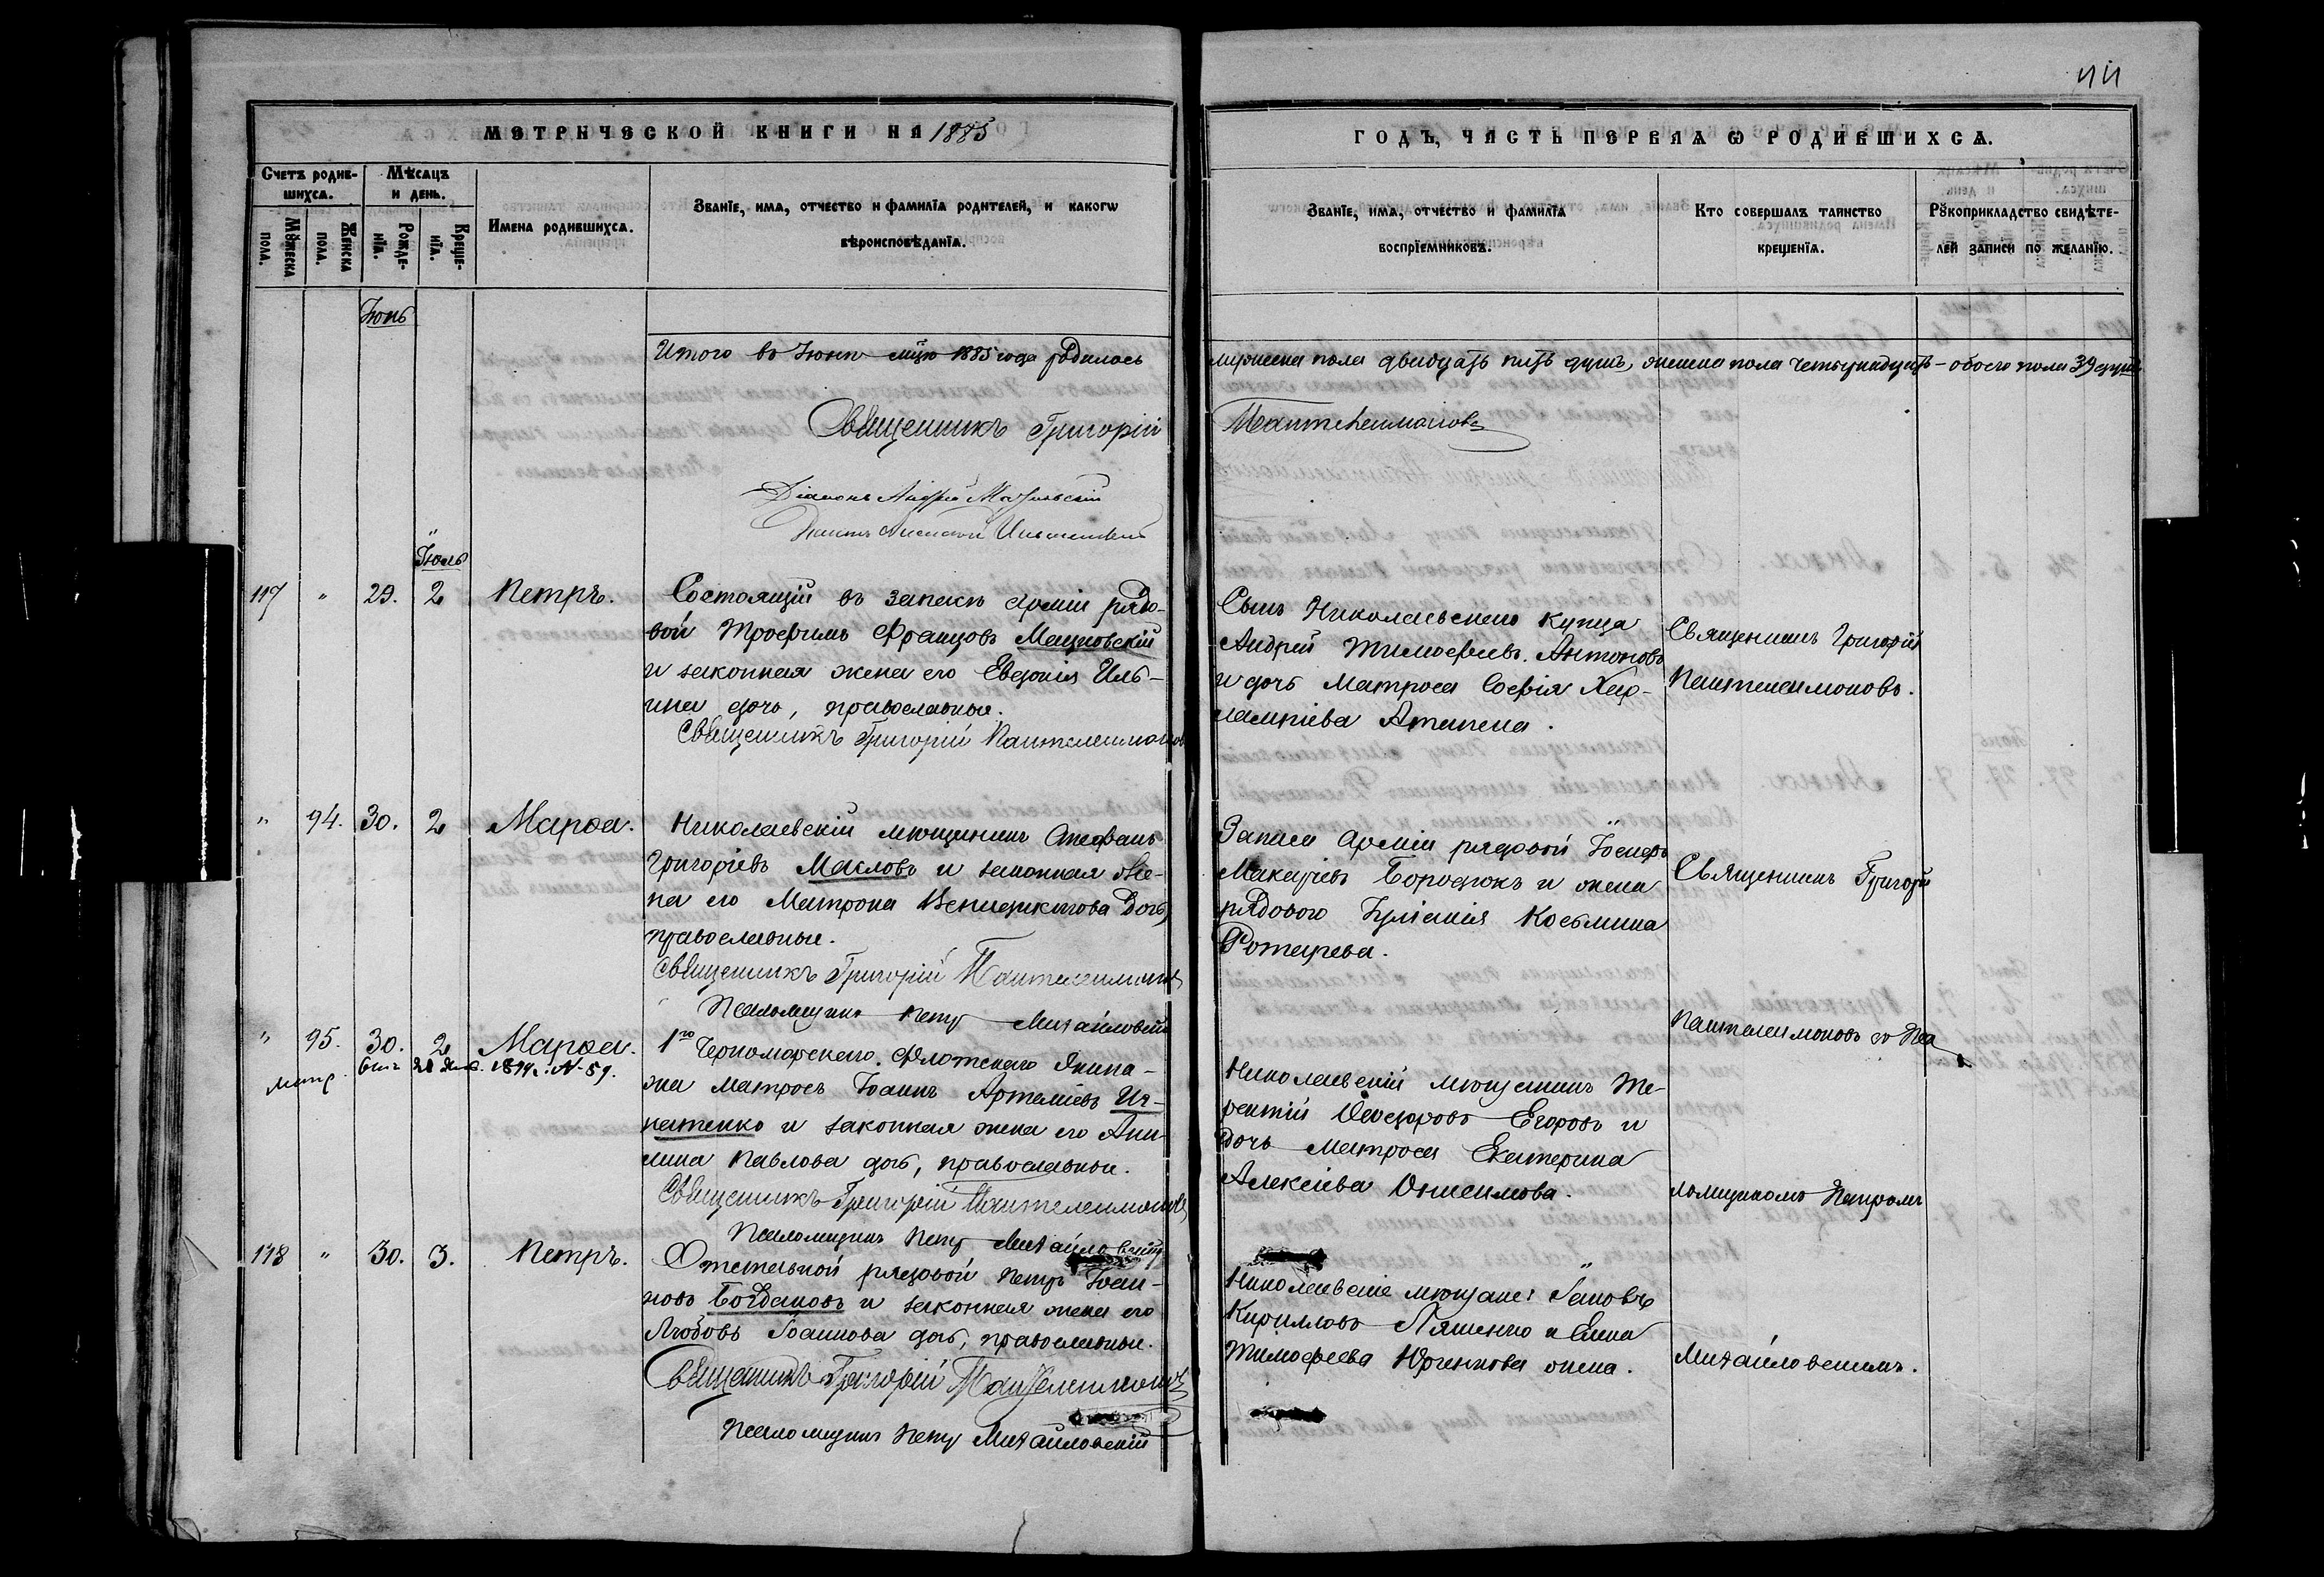 44
МЕТРИЧЕСКОЙ КНИГИ НА 1885
ГОДЪ, ЧАСТЬ ПЕРВАѦ Ѡ РОДИВШИХСѦ.
Счетъ родив-
шихсѧ.
Мѣсѧцъ
и день.
Мꙋжеска
пола.
Женска
пола.
Рожде-
нїѧ.
Креще-
нїѧ.
Имена родившихсѧ.
Званїе, имѧ, отчество и фамилїѧ родителей, и какогѡ
вѣроисповѣданїѧ.
Званїе, имѧ, отчество и фамилїѧ
воспрїемниковъ.
Кто совершалъ таинство
крещенїѧ.
Рꙋкоприкладство свидѣте-
лей записи по желанїю.
Іюнь
Итого въ Іюнѣ мцѣ 1885 года родилось мужеска пола двадцать пять душъ, женска пола четырнадцать – обоего пола 39 душъ
Священникъ Григорій Пантелеимоновъ
Діаконъ Андрей
Іюль
117 " 29. 2 Петръ.
Состоящій въ запасѣ арміи рядо-
вой Трофимъ Францовъ Мацковскій
и законная жена его Евдокія Иль-
ина дочь, православные.
Священникъ Григорій Пантелеимоновъ
Сынъ Николаевскаго купца
Андрей Тимофеевъ Антоновъ
и дочь матроса Софія Хар-
лампіева
Священникъ Григорій
Пантелеимоновъ.
" 94. 30. 2 Марѳа.
Николаевскій мѣщанинъ Стефанъ
Григоріевъ Масловъ и законная же-
на его Матрона Венедиктова дочь,
православные.
Священникъ Григорій Пантелеимоновъ
Псаломщикъ Петръ Михайловскій
Запаса арміи рядовой Іосифъ
Макаріевъ Бородюкъ и жена
рядового Іуліанія Косьмина
Священникъ Григорій
" 95. 30. 2 Марѳа.
метр. 1894 г. № 59.
1го Черноморскаго Флотскаго Экипа-
жа матросъ Іоаннъ Артеміевъ Иг-
натенко и законная жена его Аки-
лина Павлова дочь, православные.
Священникъ Григорій Пантелеимоновъ
Псаломщикъ Петръ Михайловскій
Николаевскій мѣщанинъ Те-
рентій Ѳеодоровъ Егоровъ и
дочь матроса Екатерина
Алексіева Онисимова.
Пантелеимоновъ со Пса
ломщикомъ Петромъ
118 " 30. 3. Петръ.
Отставной рядовой Петръ Іоан-
новъ Богдановъ и законная жена его
Любовь Іоаннова дочь, православные.
Священникъ Григорій Пантелеимоновъ
Псаломщикъ Петръ Михайловскій
Николаевскіе мѣщане: Іаковъ
Кирилловъ Ляшенко и Елена
Тимофеева Юрченкова жена.
Михайловскимъ.